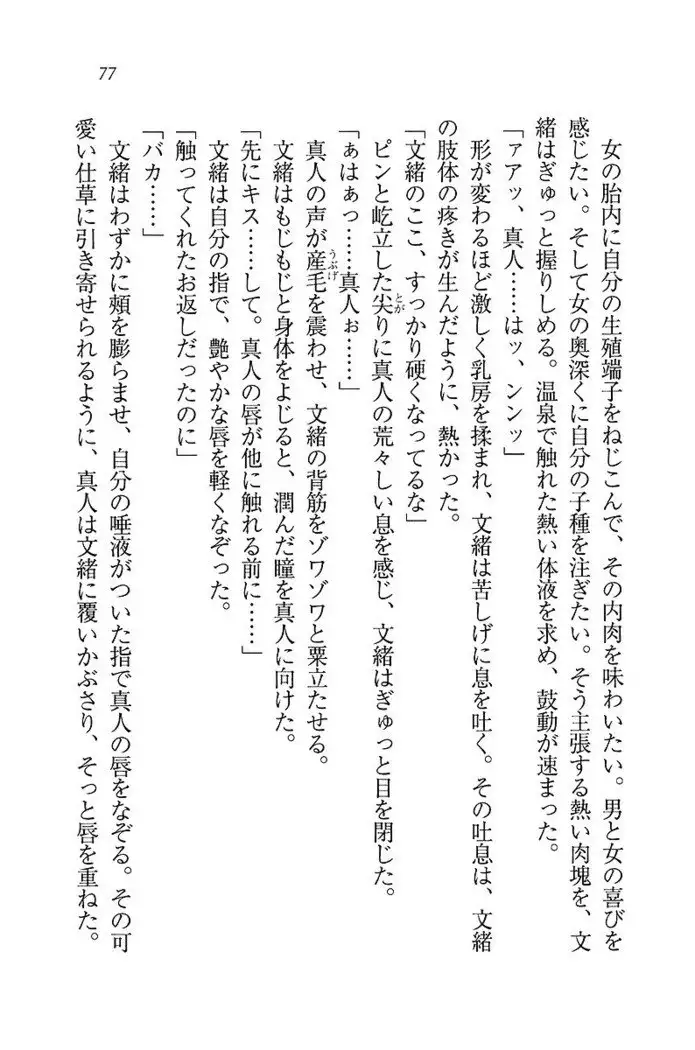 77
女の胎内に自分の生殖端子をねじこんで、その内肉を味わいたい。男と女の喜びを
感じたい。そして女の奥深くに自分の子種を注ぎたい。そう主張する熱い肉塊を、文
緒はぎゅっと握りしめる。温泉で触れた熱い体液を求め、鼓動が速まった。
「アアッ、真人……はッ、ンンッ」
形が変わるほど激しく乳房を揉まれ、文緒は苦しげに息を吐く。その吐息は、文緒
の肢体の疼きが生んだように、熱かった。
「文緒のここ、すっかり硬くなってるな」
ピンと屹立した尖りに真人の荒々しい息を感じ、文緒はぎゅっと目を閉じた。
とが
「ぁはぁっ……真人ぉ……」
真人の声が産毛を震わせ、文緒の背筋をゾワゾワと粟立たせる。
うぶげ
文緒はもじもじと身体をよじると、潤んだ瞳を真人に向けた。
「先にキス……して。真人の唇が他に触れる前に……」
文緒は自分の指で、艶やかな唇を軽くなぞった。
「触ってくれたお返しだったのに」
「バカ……」
文緒はわずかに頬を膨らませ、自分の唾液がついた指で真人の唇をなぞる。その可
愛い仕草に引き寄せられるように、真人は文緒に覆いかぶさり、そっと唇を重ねた。